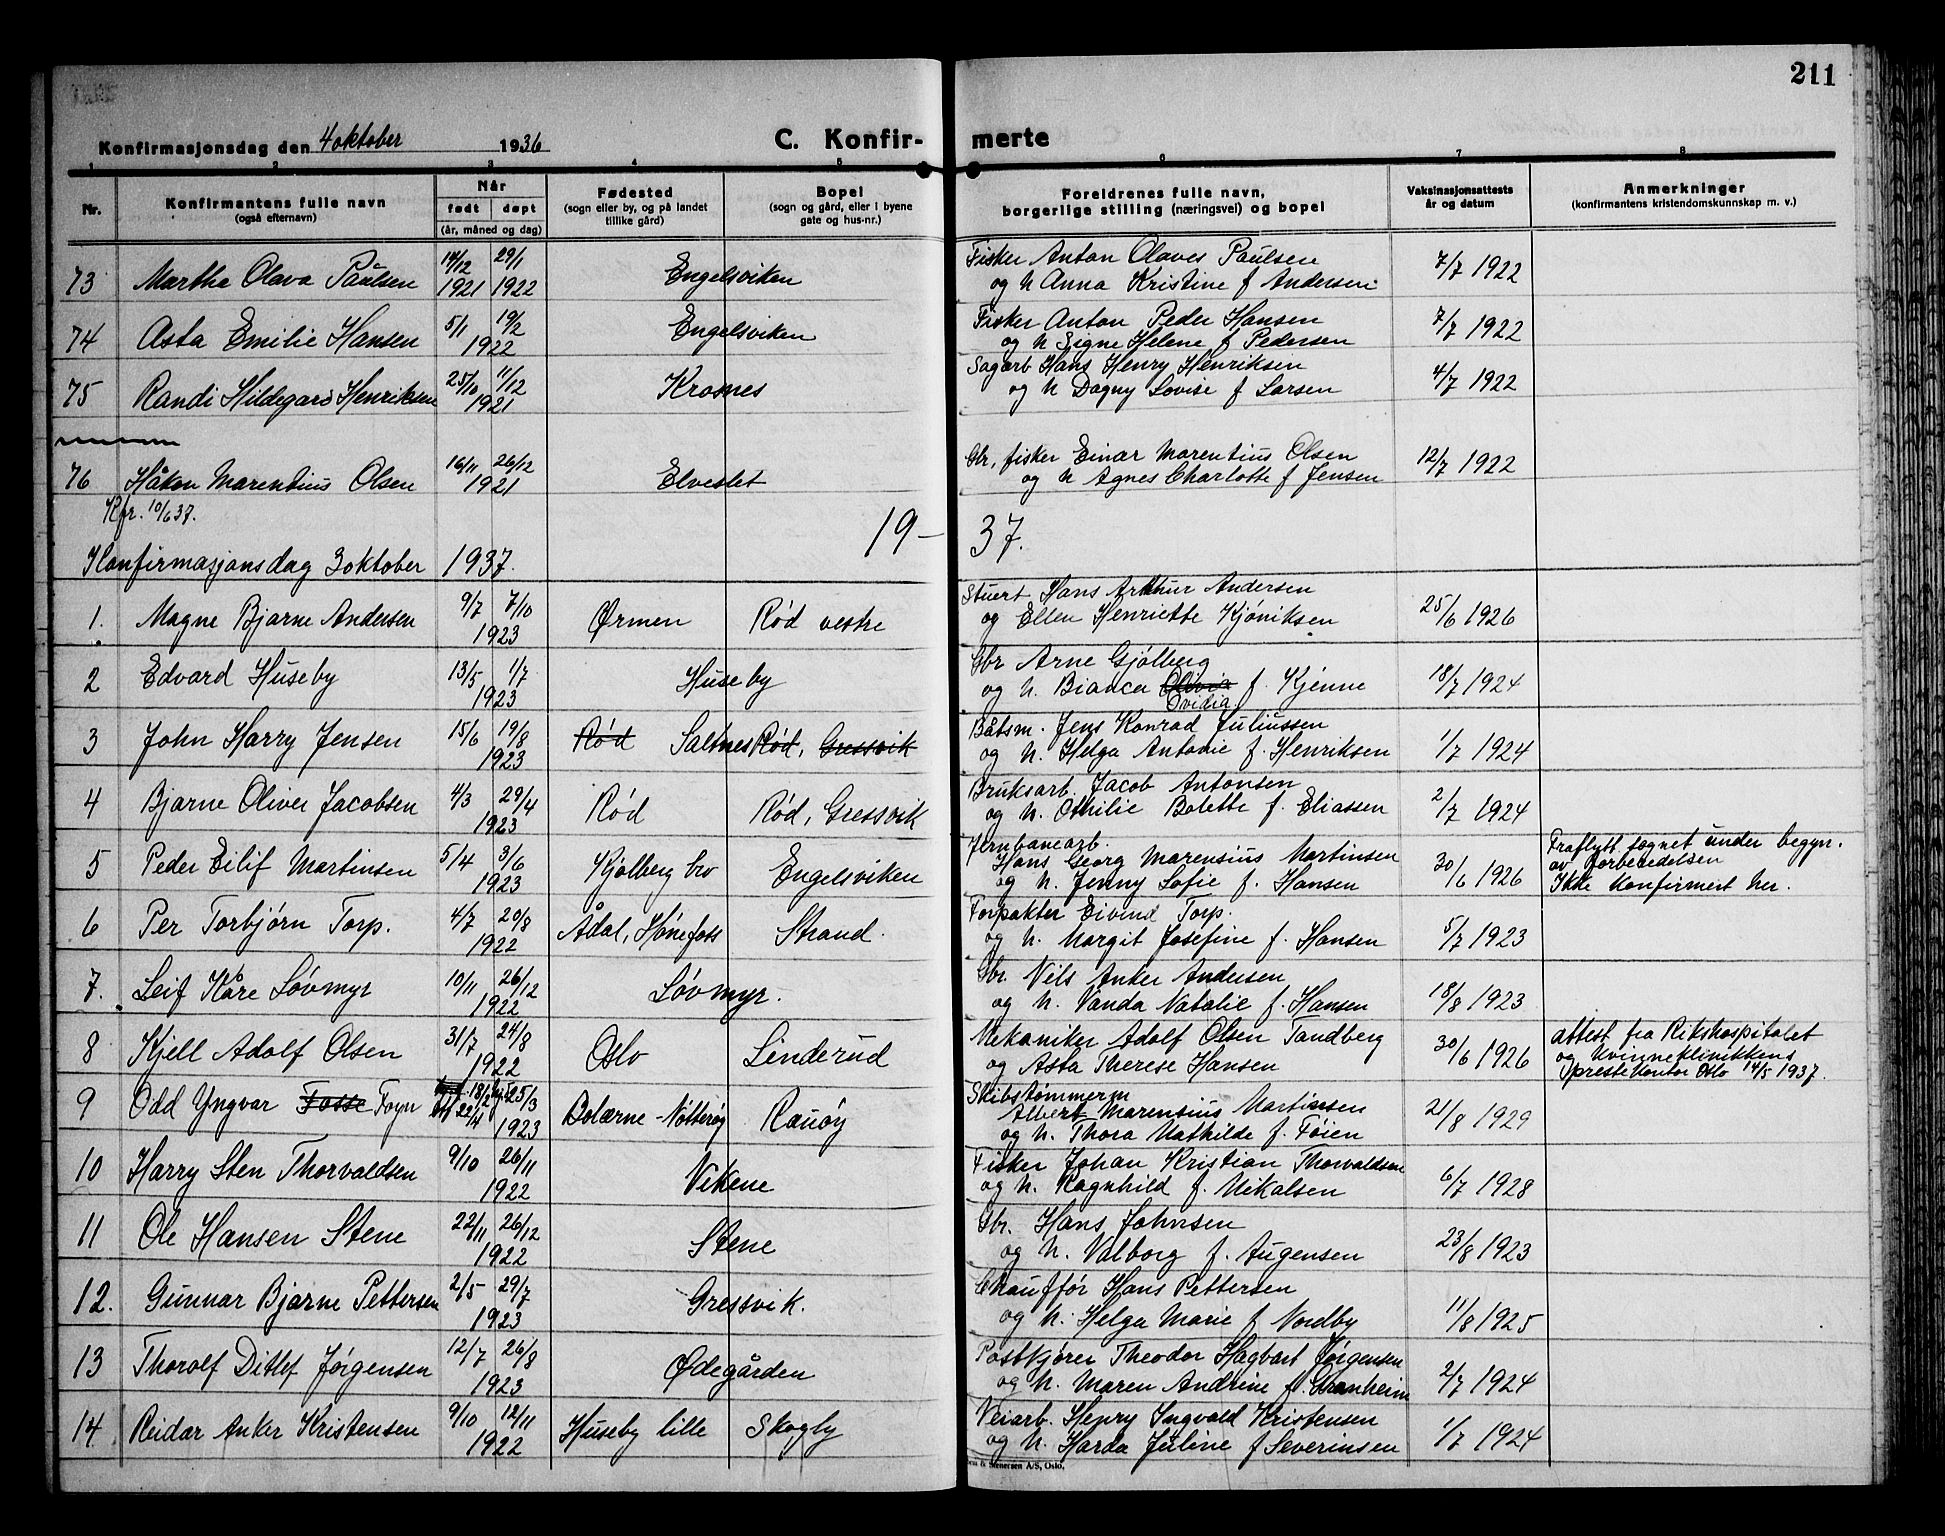 211
Konfirmasjonsdag den 4 oktober 1936 C. Konfir- merte
1 2 3 4 5 6 7 8
Nr.
Konfirmantens fulle navn
(også efternavn)
Når
født døpt
(år, måned og dag)
Fødested
(sogn eller by, og på landet
tillike gård)
Bopel
(sogn og gård, eller i byene
gate og hus-nr.)
Foreldrenes fulle navn,
borgerlige stilling (næringsvei) og bopel
Vaksinasjonsattests
år og datum
Anmerkninger
(konfirmantens kristendomskunnskap m. v.)
73 Martha Olava Paulsen 14/12 1921 29/1 1922 Engelsviken Fisker Anton Olaves Paulsen 7/7 1922
og h Anna Kristine f Andersen
74 Asta Emilie Hansen 5/1 19/2 1922 Engelsviken Fisker Anton Peder Hansen 7/7 1922
og h Signe Helene f Pedersen
75 Randi Hildegard Henriksen 25/10 11/12 1921 Krosnes Sagarb Hans Henry Henriksen 4/7 1922
og h Dagny Lovise f Larsen
76 Håkon Marentius Olsen 16/11 26/12 1921 Elvestet Gbr, fisker Einar Marentius Olsen 12/7 1922
og h Agnes Charlotte f Jensen
Kfr. 10/6 37.
19 - 37.
Konfirmasjonsdag 3 oktober 1937.
1. Magne Bjarne Andersen 9/7 7/10 1923 Ørmen Rød vestre Stuert Hans Arthur Andersen 25/6 1926
og Ellen Henriette Kjöniksen
2 Edvard Huseby 13/5 1/7 1923 Huseby Gbr Arne Gjölberg 18/7 1924
og h. Bianca Olivia f. Kjenne
Ovidia
3 John Harry Jensen 15/6 19/8 1923 Rød Saltnes Rød, Gressvik Båtsm. Jens Konrad Juliussen 1/7 1924
og h. Helga Antonie f. Henriksen
4 Bjarne Oliver Jacobsen 4/3 29/4 1923 Rød Rød, Gressvik Bruksarb. Jacob Antonsen 2/7 1924
og h. Othilie Bolette f. Eliassen
5 Peder Eilif Martinsen 5/4 3/6 1923 Kjölberg bro Engelsviken Jernbanearb. Hans Georg Marensius Martinsen 30/6 1926 Fraflytt sognet under begyn.
og h. Jenny Sofie f. Hansen av forberedelsen
Ikke konfirmert her.
6 Per Torbjørn Torp. 4/7 20/8 1922 Ådal, Hönefoss Strand. Forpakter Eivind Torp. 5/7 1923
og h. Margit Josefine f. Hansen
7. Leif Kåre Lövmyr 10/11 26/12 1922 Lövmyr. Gbr. Nils Anker Andersen 18/8 1923
og h. Vanda Natalie f. Hansen
8 Kjell Adolf Olsen 31/7 24/8 1922 Oslo Linderud Mekaniker Adolf Olsen Tandberg 30/6 1926 attest fra Rikshospitalet
og Asta Therese Hansen og Kvinneklinikkens
prestekontor Oslo 14/5 1937.
9 Odd Yngvar Fosse Foyn 18/2 22/4 25/3 1923 Bolærne - Nötteröy Rauöy Skibstømmerm 21/8 1929
Albert Marensius Martinsen
og h. Thora Mathilde f. Föien
10 Harry Sten Thorvaldsen 9/10 26/11 1922 Vikene Fisker Johan Kristian Thorvaldsen 6/7 1928
og h. Ragnhild f. Mikalsen
11 Ole Hansen Stene 22/11 26/12 1922 Stene Gbr. Hans Johnsen 23/8 1923
og h. Valborg f. Augensen
12. Gunnar Bjarne Pettersen 2/5 29/7 1923 Gressvik. Chauffør Hans Pettersen 11/8 1925
og h. Helga Marie f Nordby
13 Thorolf Ditlef Jörgensen 12/7 26/8 1923 Ødegården Postkjörer Theodor Hagbart Jörgensen 2/7 1924
og h. Maren Andrine f. Granheim
14 Reidar Anker Kristensen 9/10 12/11 1922 Huseby lille Skogly Veiarb. Henry Ingvald Kristensen 1/7 1924
og h. Harda Juline f Severinsen
& Stenersen A/S, Oslo.